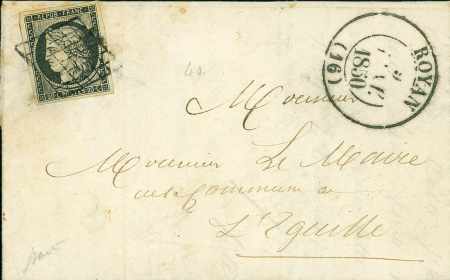 REPUB. FRANC.
ROYAN
1850
(16)
40
Monsieur
Monsieur Le Maire
de la Commune de
L'Eguille